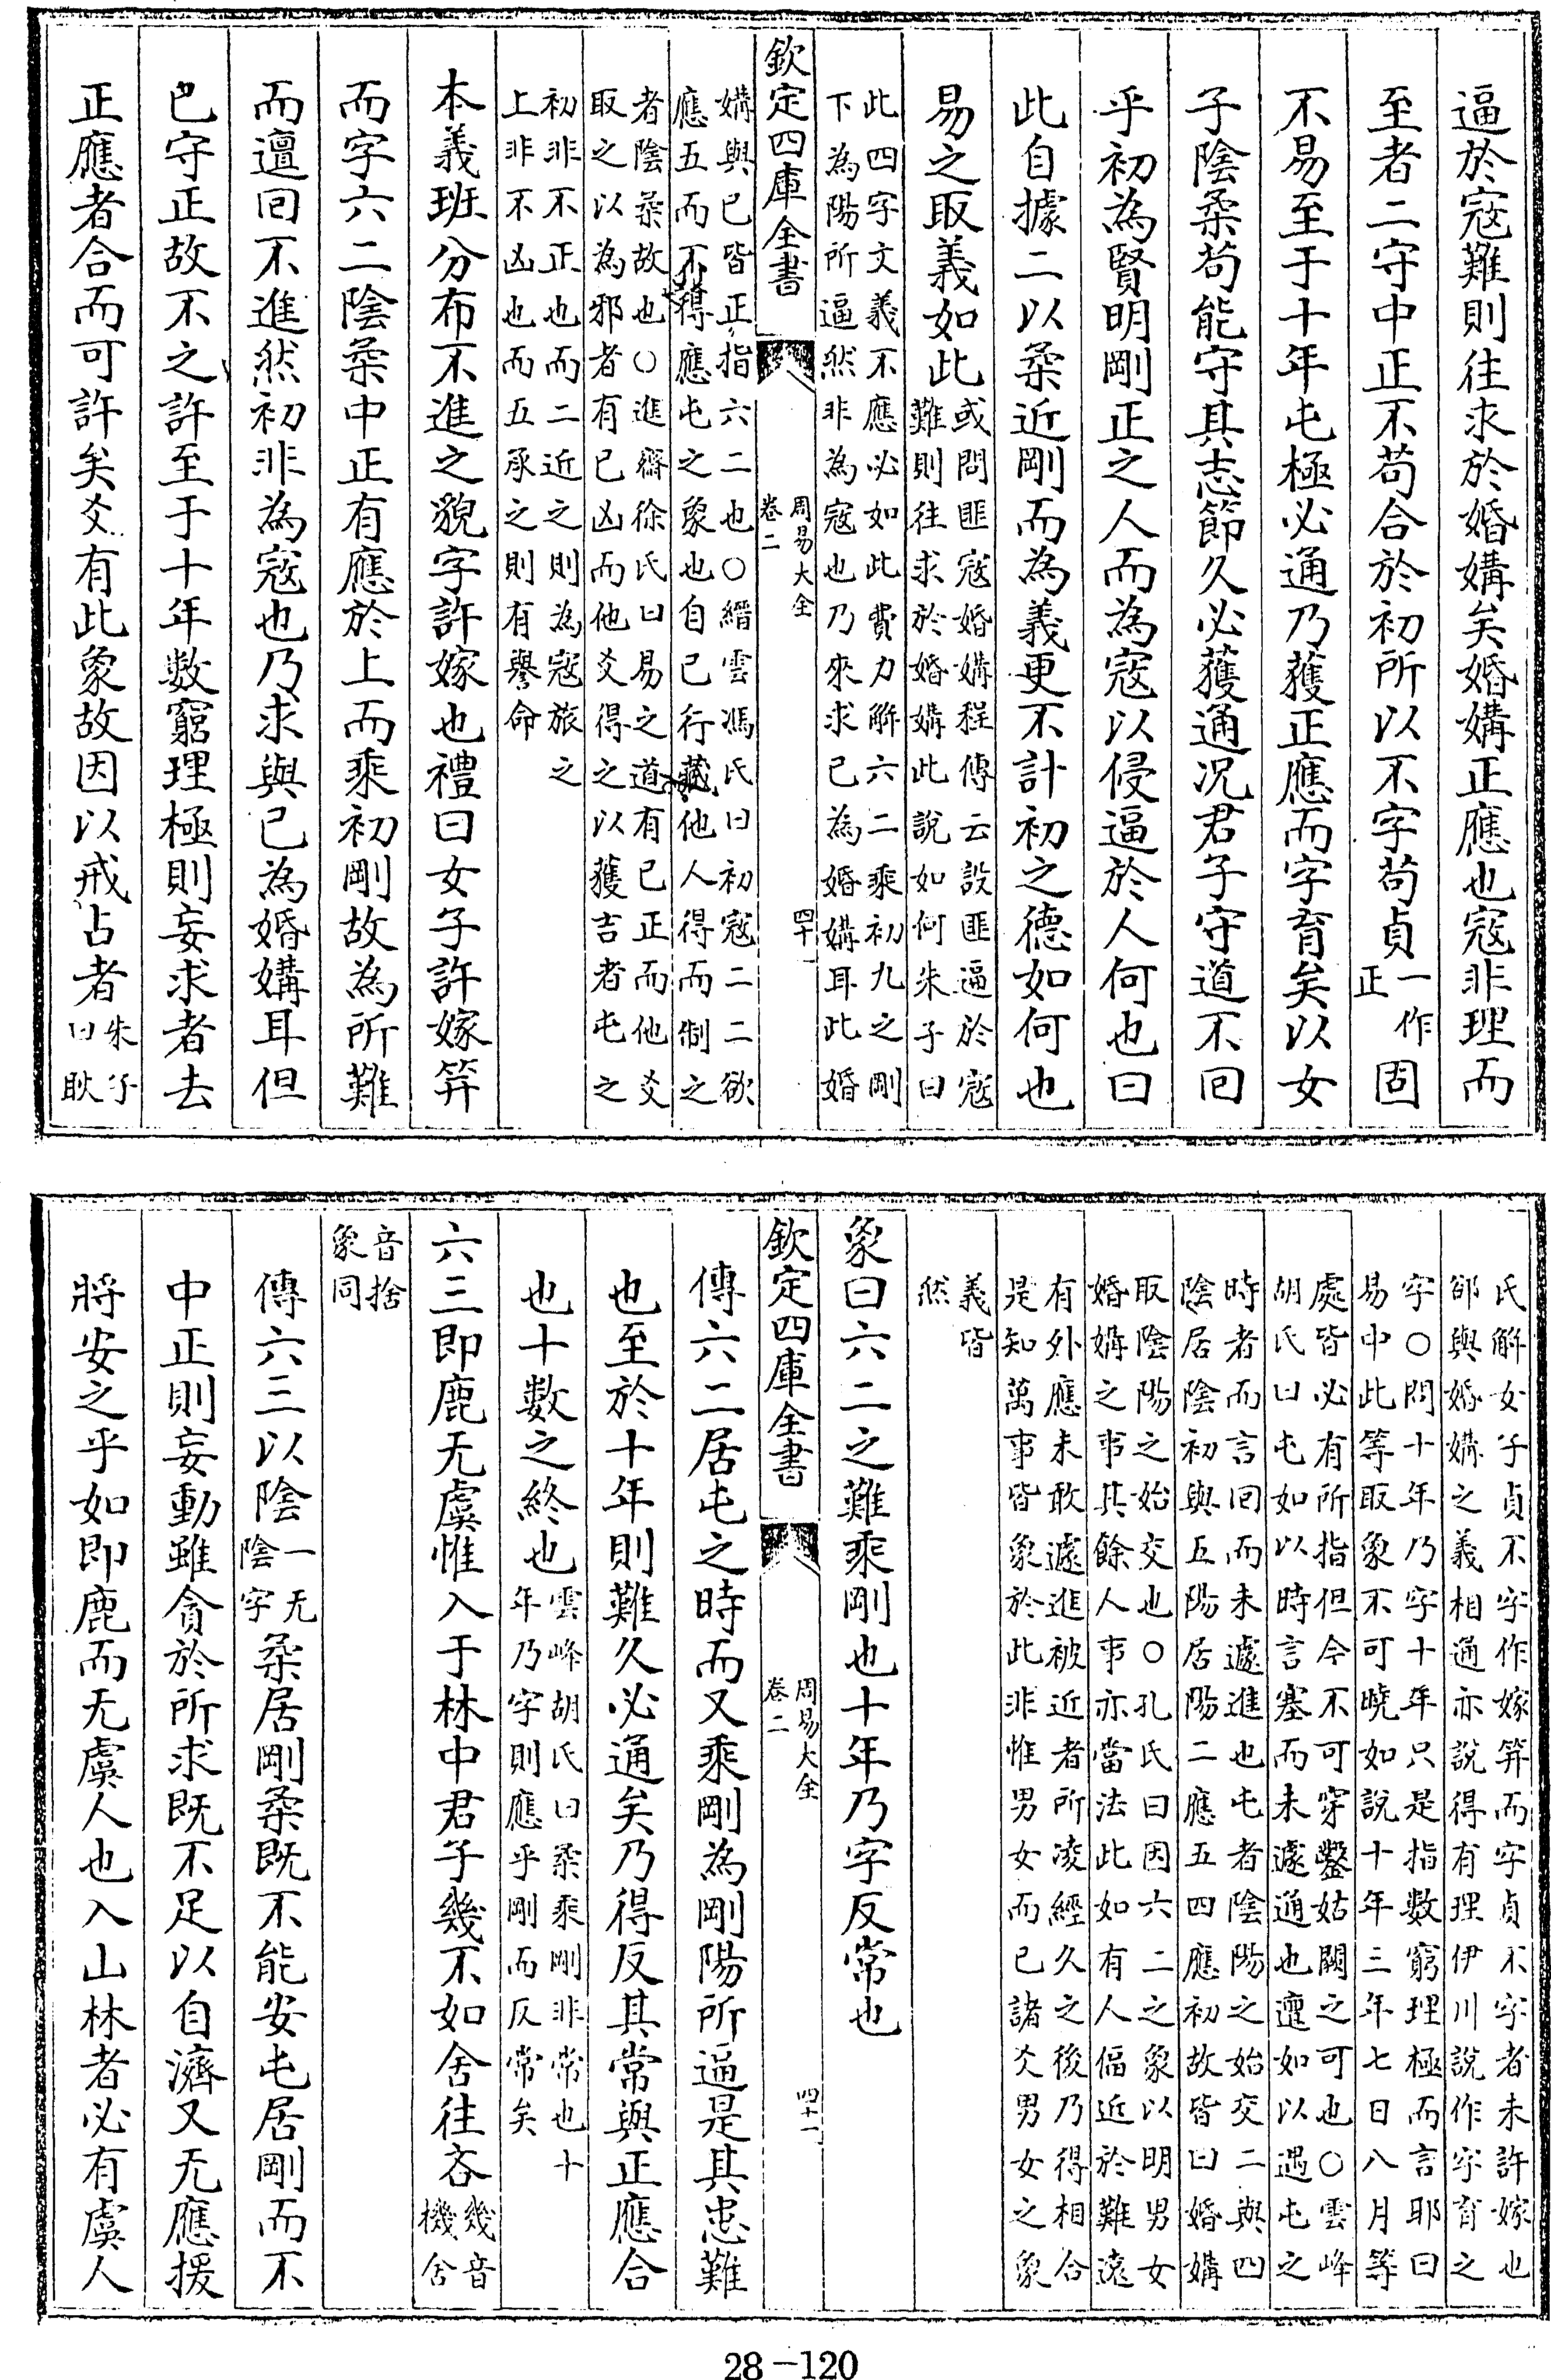 逼於寇難則往求於婚媾矣婚媾正應也寇非理而
至者二守中正不苟合於初所以不字苟貞一作正固
不易至于十年屯極必通乃獲正應而字育矣以女
子陰柔苟能守其志節久必獲通况君子守道不回
乎初為賢明剛正之人而為寇以侵逼於人何也曰
此自據二以柔近剛而為義更不計初之德如何也
易之取義如此或問匪寇婚媾程傳云設匪逼於寇
難則往求於婚媾此說如何朱子曰
此四字文義不應必如此費力解六二乘初九之剛
下為陽所逼然非為寇也乃來求己為婚媾耳此婚
欽定四庫全書
周易大全
卷二
四十
媾與己皆正指六二也○縉雲馮氏曰初寇二二欲
應五而不得應屯之象也自己行藏他人得而制之
者陰柔故也○進齋徐氏曰易之道有己正而他爻
取之以為邪者有己凶而他爻得之以獲吉者屯之
初非不正也而二近之則為寇旅之
上非不凶也而五承之則有譽命
本義班分布不進之貌字許嫁也禮曰女子許嫁笄
而字六二陰柔中正有應於上而乘初剛故為所難
而邅回不進然初非為寇也乃求與己為婚媾耳但
己守正故不之許至于十年數窮理極則妄求者去
正應者合而可許矣爻有此象故因以戒占者朱子
曰耿
氏解女子貞不字作嫁笄而字貞不字者未許嫁也
郤與婚媾之義相通亦說得有理伊川說作字育之
字○問十年乃字十年只是指數窮理極而言耶曰
易中此等取象不可曉如說十年三年七日八月等
處皆必有所指但今不可穿鑿姑闕之可也○雲峰
胡氏曰屯如以時言塞而未遽通也邅如以遇屯之
時者而言回而未遽進也屯者陰陽之始交二與四
陰居陰初與五陽居陽二應五四應初故皆曰婚媾
取陰陽之始交也○孔氏曰因六二之象以明男女
婚媾之事其餘人事亦當法此如有人偪近於難遠
有外應未敢遽進被近者所凌經久之後乃得相合
是知萬事皆象於此非惟男女而已諸爻男女之象
義皆
然
象曰六二之難乘剛也十年乃字反常也
欽定四庫全書
周易大全
卷二
四十一
傳六二居屯之時而又乘剛為剛陽所逼是其患難
也至於十年則難久必通矣乃得反其常與正應合
也十數之終也雲峰胡氏曰柔乘剛非常也十
年乃字則應乎剛而反常矣
六三即鹿无虞惟入于林中君子幾不如舍往吝幾音
機舍
音捨
象同
傳六三以陰一无陰字柔居剛柔既不能安屯居剛而不
中正則妄動雖貪於所求既不足以自濟又无應援
將安之乎如即鹿而无虞人也入山林者必有虞人
28-120